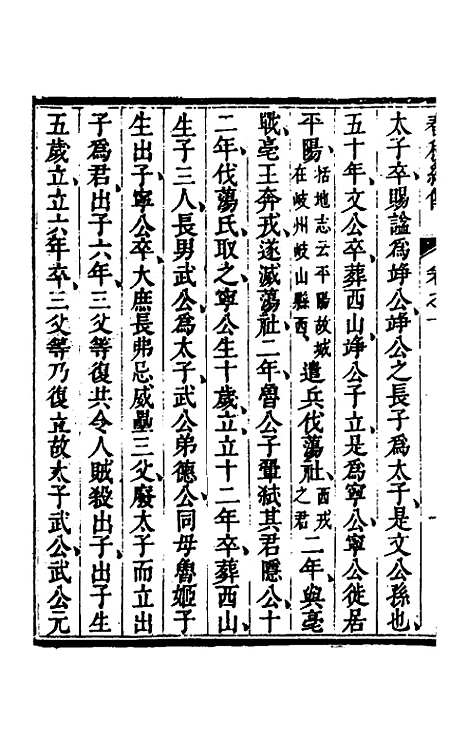 太子卒賜謚為竫公竫公之長子為太子是文公孫也
五十年文公卒葬西山竫公子立是為寧公寧公徙居
平陽括地志云平陽故城在岐州岐山縣西遣兵伐蕩社西戎之君二年與亳
戰亳王奔戎遂滅蕩社二年魯公子翬弒其君隱公十
二年伐蕩氏取之寧公生十歲立立十二年卒葬西山
生子三人長男武公為太子武公弟德公同母魯姬子
生出子寧公卒大庶長弗忌威壘三父廢太子而立出
子為君出子六年三父等復共令人賊殺出子出子生
五歲立立六年卒三父等乃復立故太子武公武公元